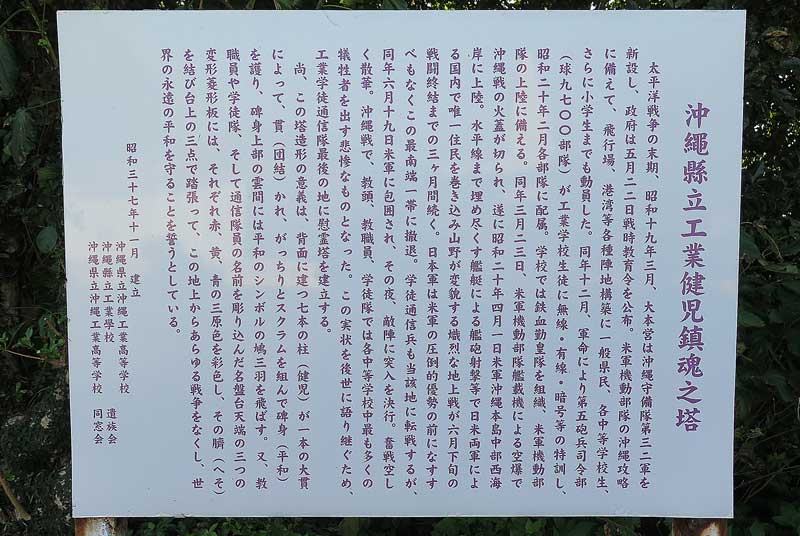 沖繩縣立工業健児鎮魂之塔
太平洋戦争の末期、昭和十九年三月、大本営は沖縄守備隊第三二軍を
新設し、政府は五月二二日戦時教育令を公布。米軍機動部隊の沖縄攻略
に備えて、飛行場、港湾等各種陣地構築に一般県民、各中等学校生、
さらに小学生までも動員した。同年十二月、軍命により第五砲兵司令部
（球九七〇〇部隊）が工業学校生徒に無線・有線・暗号等の特訓し、
昭和二十年二月各部隊に配属。学校では鉄血勤皇隊を組織、米軍機動部
隊の上陸に備える。同年三月二三日、米軍機動部隊艦載機による空爆で
沖縄戦の火蓋が切られ、遂に昭和二十年四月一日米軍沖縄本島中部西海
岸に上陸。水平線まで埋め尽くす艦艇による艦砲射撃等で日米両軍によ
る国内で唯一住民を巻き込み山野が変貌する熾烈な地上戦が六月下旬の
戦闘終結までの三ヶ月間続く。日本軍は米軍の圧倒的優勢の前になすす
べもなくこの最南端一帯に撤退。学徒通信兵も当該地に転戦するが、
同年六月十九日米軍に包囲され、その夜、敵陣に突入を決行。奮戦空し
く散華。沖縄戦で、教頭、教職員、学徒隊では各中等学校中最も多くの
犠牲者を出す悲惨なものとなった。この実状を後世に語り継ぐため、
工業学徒通信隊最後の地に慰霊塔を建立する。
尚、この塔造形の意義は、背面に建つ七本の柱（健児）が一本の大貫
によって、貫（団結）かれ、がっちりとスクラムを組んで碑身（平和）
を護り、碑身上部の雲間には平和のシンボルの鳩三羽を飛ばす。又、教
職員や学徒隊、そして通信隊員の名前を彫り込んだ名盤台天端の三つの
変形菱形板には、それぞれ赤、黄、青の三原色を彩色し、その臍（へそ）
を結び台上の三点で踏張って、この地上からあらゆる戦争をなくし、世
界の永遠の平和を守ることを誓うとしている。
昭和三十七年十一月 建立
沖縄県立沖縄工業高等学校 遺族会
沖縄縣立工業学校
沖縄県立沖縄工業高等学校 同窓会